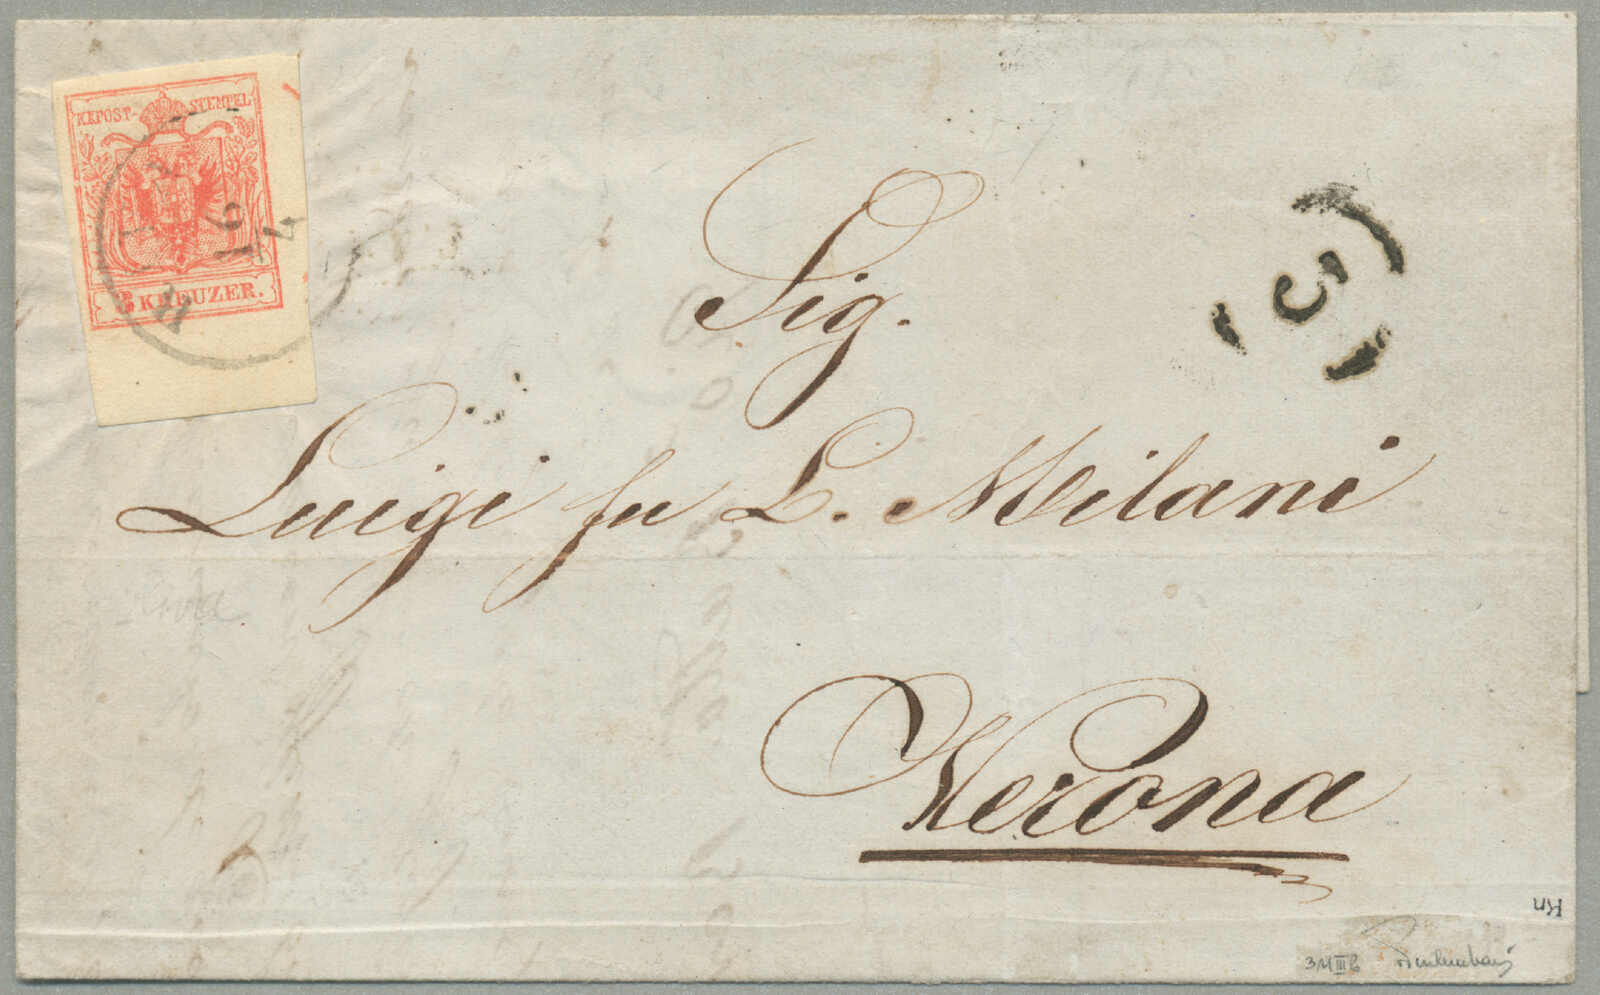 KKPOST-STEMPEL
3 KREUZER.
16
4
C
Sig.
Luigi fu L. Milani
Verona
Kn
3MIIIb